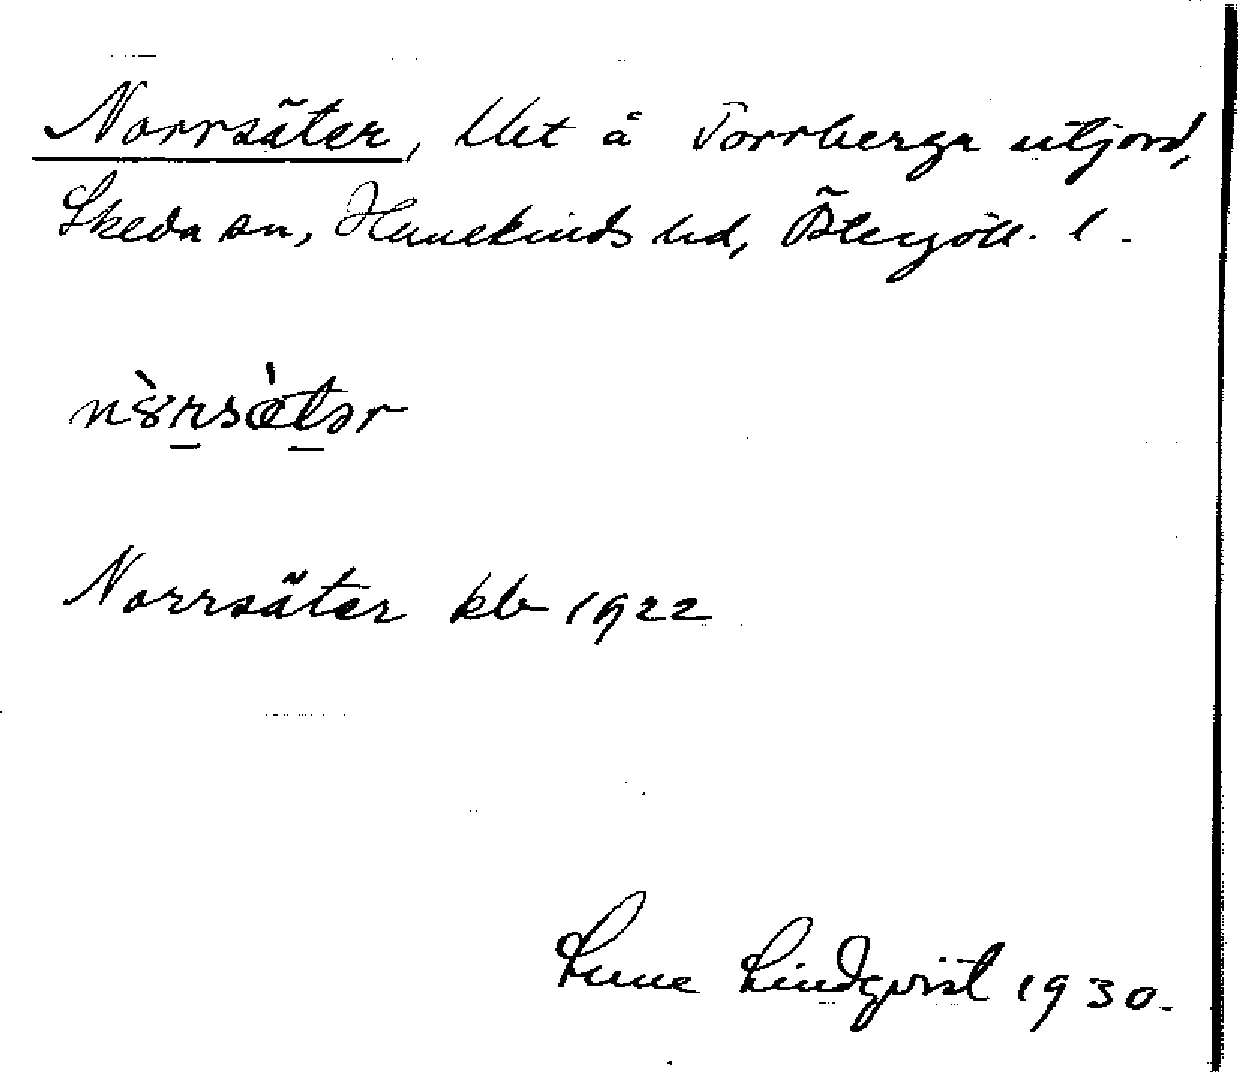 Norrsäter, lht å Torrberga utjord,
Skeda sn, Hanekinds hd, Östergötl. l.
nòrsæ̀tər
Norrsäter kb 1922
Sune Lindqvist 1930.